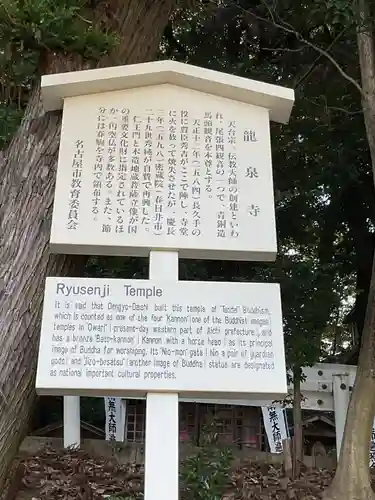 龍泉寺
天台宗。伝教大師の創建といわ
れ、尾張四観音の一つで、青銅造
馬頭観音を本尊とする。
天正十二年(一五八四)長久手の
役に豊臣秀吉がここで陣し、寺堂
に火を放って焼失させたが、慶長
三年(一五九八)密蔵院(春日井市)
二十九世秀純が自費で再興した。
仁王門と木造地蔵菩薩立像が国
の重要文化財に指定されているほ
か、円空仏が多数ある。また、節
分には春駒を寺内で領布する。
名古屋市教育委員会
Ryusenji Temple
It is said that Dengyo-Daishi built this temple of "Tendai" Buddhism,
which is counted as one of the four Kannon"(one of the Buddhist images)
temples in "Owari"(present-day western part of Aichi prefecture), and
has a bronze Bato-kannon(Kannon with a horse head) as its principal
image of Buddha for worshiping. Its "Nio-mon"gate(Nio a pair of guardian
gods) and "Jizo-bosatsu"(another image of Buddha) statue are designated
as national important cultural properties.
南無大師